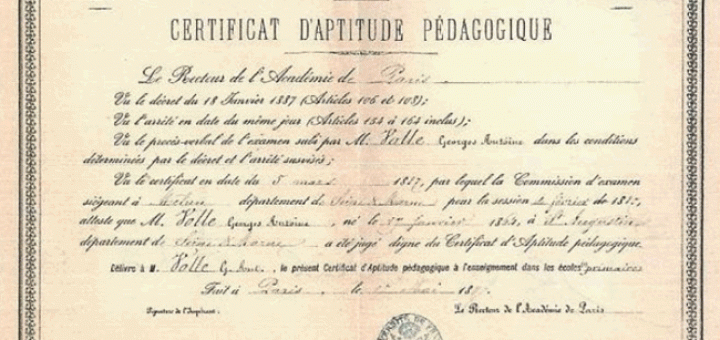 CERTIFICAT D'APTITUDE PÉDAGOGIQUE
Le Recteur de l'Académie de Paris
Vu le décret du 18 Janvier 1887 (Articles 106 et 108);
Vu l'arrêté en date du même jour (Articles 154 à 164 inclus);
Vu le procès-verbal de l'examen subi par M. Volle Georges Antoine dans les conditions
déterminées par le décret et l'arrêté susvisés;
Vu le certificat en date du 5 mars 1887, par lequel la Commission d'examen
siégeant à Melun département de Seine & Marne pour la session de février de
atteste que M. Volle Georges Antoine, né le janvier à St Augustin
département de Seine & Marne a été jugé digne du Certificat d'Aptitude pédagogique.
Délivre à M. Volle G. Ant. le présent Certificat d'Aptitude pédagogique à l'enseignement dans les écoles primaires
Fait à Paris, le Mai
Signature de l'Impétrant: Le Recteur de l'Académie de Paris